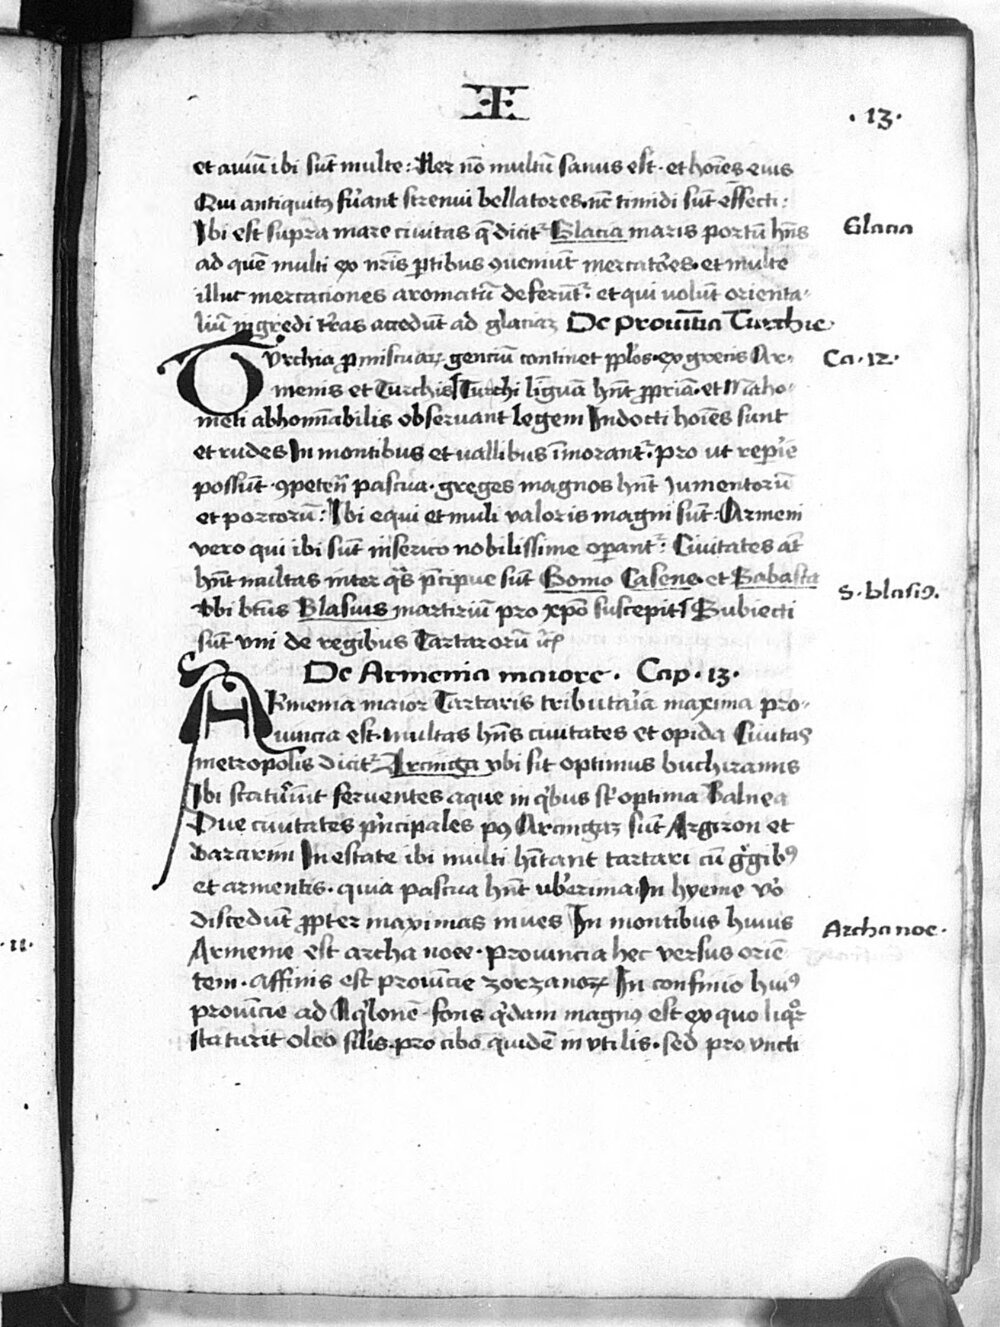 I
.13.
et auiū ibi sūt multe: Aer nō multū sanus est. et hoīes eius
Qui antiquitꝰ fuãnt strenui bellatores. nūc timidi sūt effecti:
Ibi est supra mare ciuitas q̄ dicitr̄ Glacia maris portū hn̄s
Glacia
ad quē multi ex nr̄is ꝑtibus ꝯueniūt mercatōes. et multe
illuc mercationes aromatū deferūtr̄. et qui uolūt orienta-
liū ingredi tr̄as accedūt ad glaciaꝫ De prouītia Turchie
Ca.12.
Turchia ꝑmiscuaꝫ genciū continet pp̄los. ex grecis Ar-
menis et Turchis Turchi linguā hn̄t ꝓpriā. et Maho-
meti abhominabilis obseruant legem Indocti hoīes sunt
et rudes In montibus et uallibus īmoranтr̄. pro ut reperīe
possūt. ꝯpeteñ pascua. greges magnos hn̄t Jumentorū
et porcorū: Ibi equi et muli valoris magni sūt: Armeni
vero qui ibi sūt in serico nobilissime oꝑantr̄: Ciuitates aūt
hn̄t multas inter q̄s p̄cipue sūt Gomo Casene. et Sabasta
Vbi btūs Blasius martiriū pro xp̄o suscepit Subiecti
S. blasiꝯ.
sūt vni de regibus Tartarorū
De Armenia maiore. Cap.13.
ARmenia maior Tartaris tributaria maxima pro-
uincia est. multas hn̄s ciuitates et opida Ciuitas
metropolis dicitr̄ Arcinga vbi fit optimus buchiramus
Ibi scaturiūt feruentes aque in qͥbus sūt optima Balnea
Due ciuitates pͥncipales pꝰ Arcingaꝫ sūt Argiron et
dararim In estate ibi multi hītant tartari cū gͤgibꝰ
et armentis. quia pascua hn̄t uberima In hyeme vō
discedūt ꝓpter maximas niues In montibus huius
Archa noe.
Armenie est archa noee. prouincia hec versus oriē-
.11.
tem. affinis est prouīcie zorzanoꝝ In confinio huiꝰ
prouīcie ad Aqͥlonē fons qͥdam magnꝰ est ex quo liqͦr
scaturit oleo sīlis. pro cibo quidē in vtilis. sed pro vncti